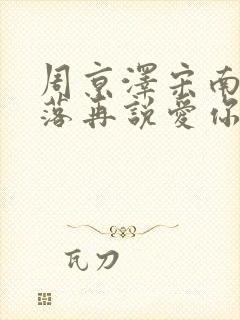 周京澤宋南
落再說愛你
瓦刀